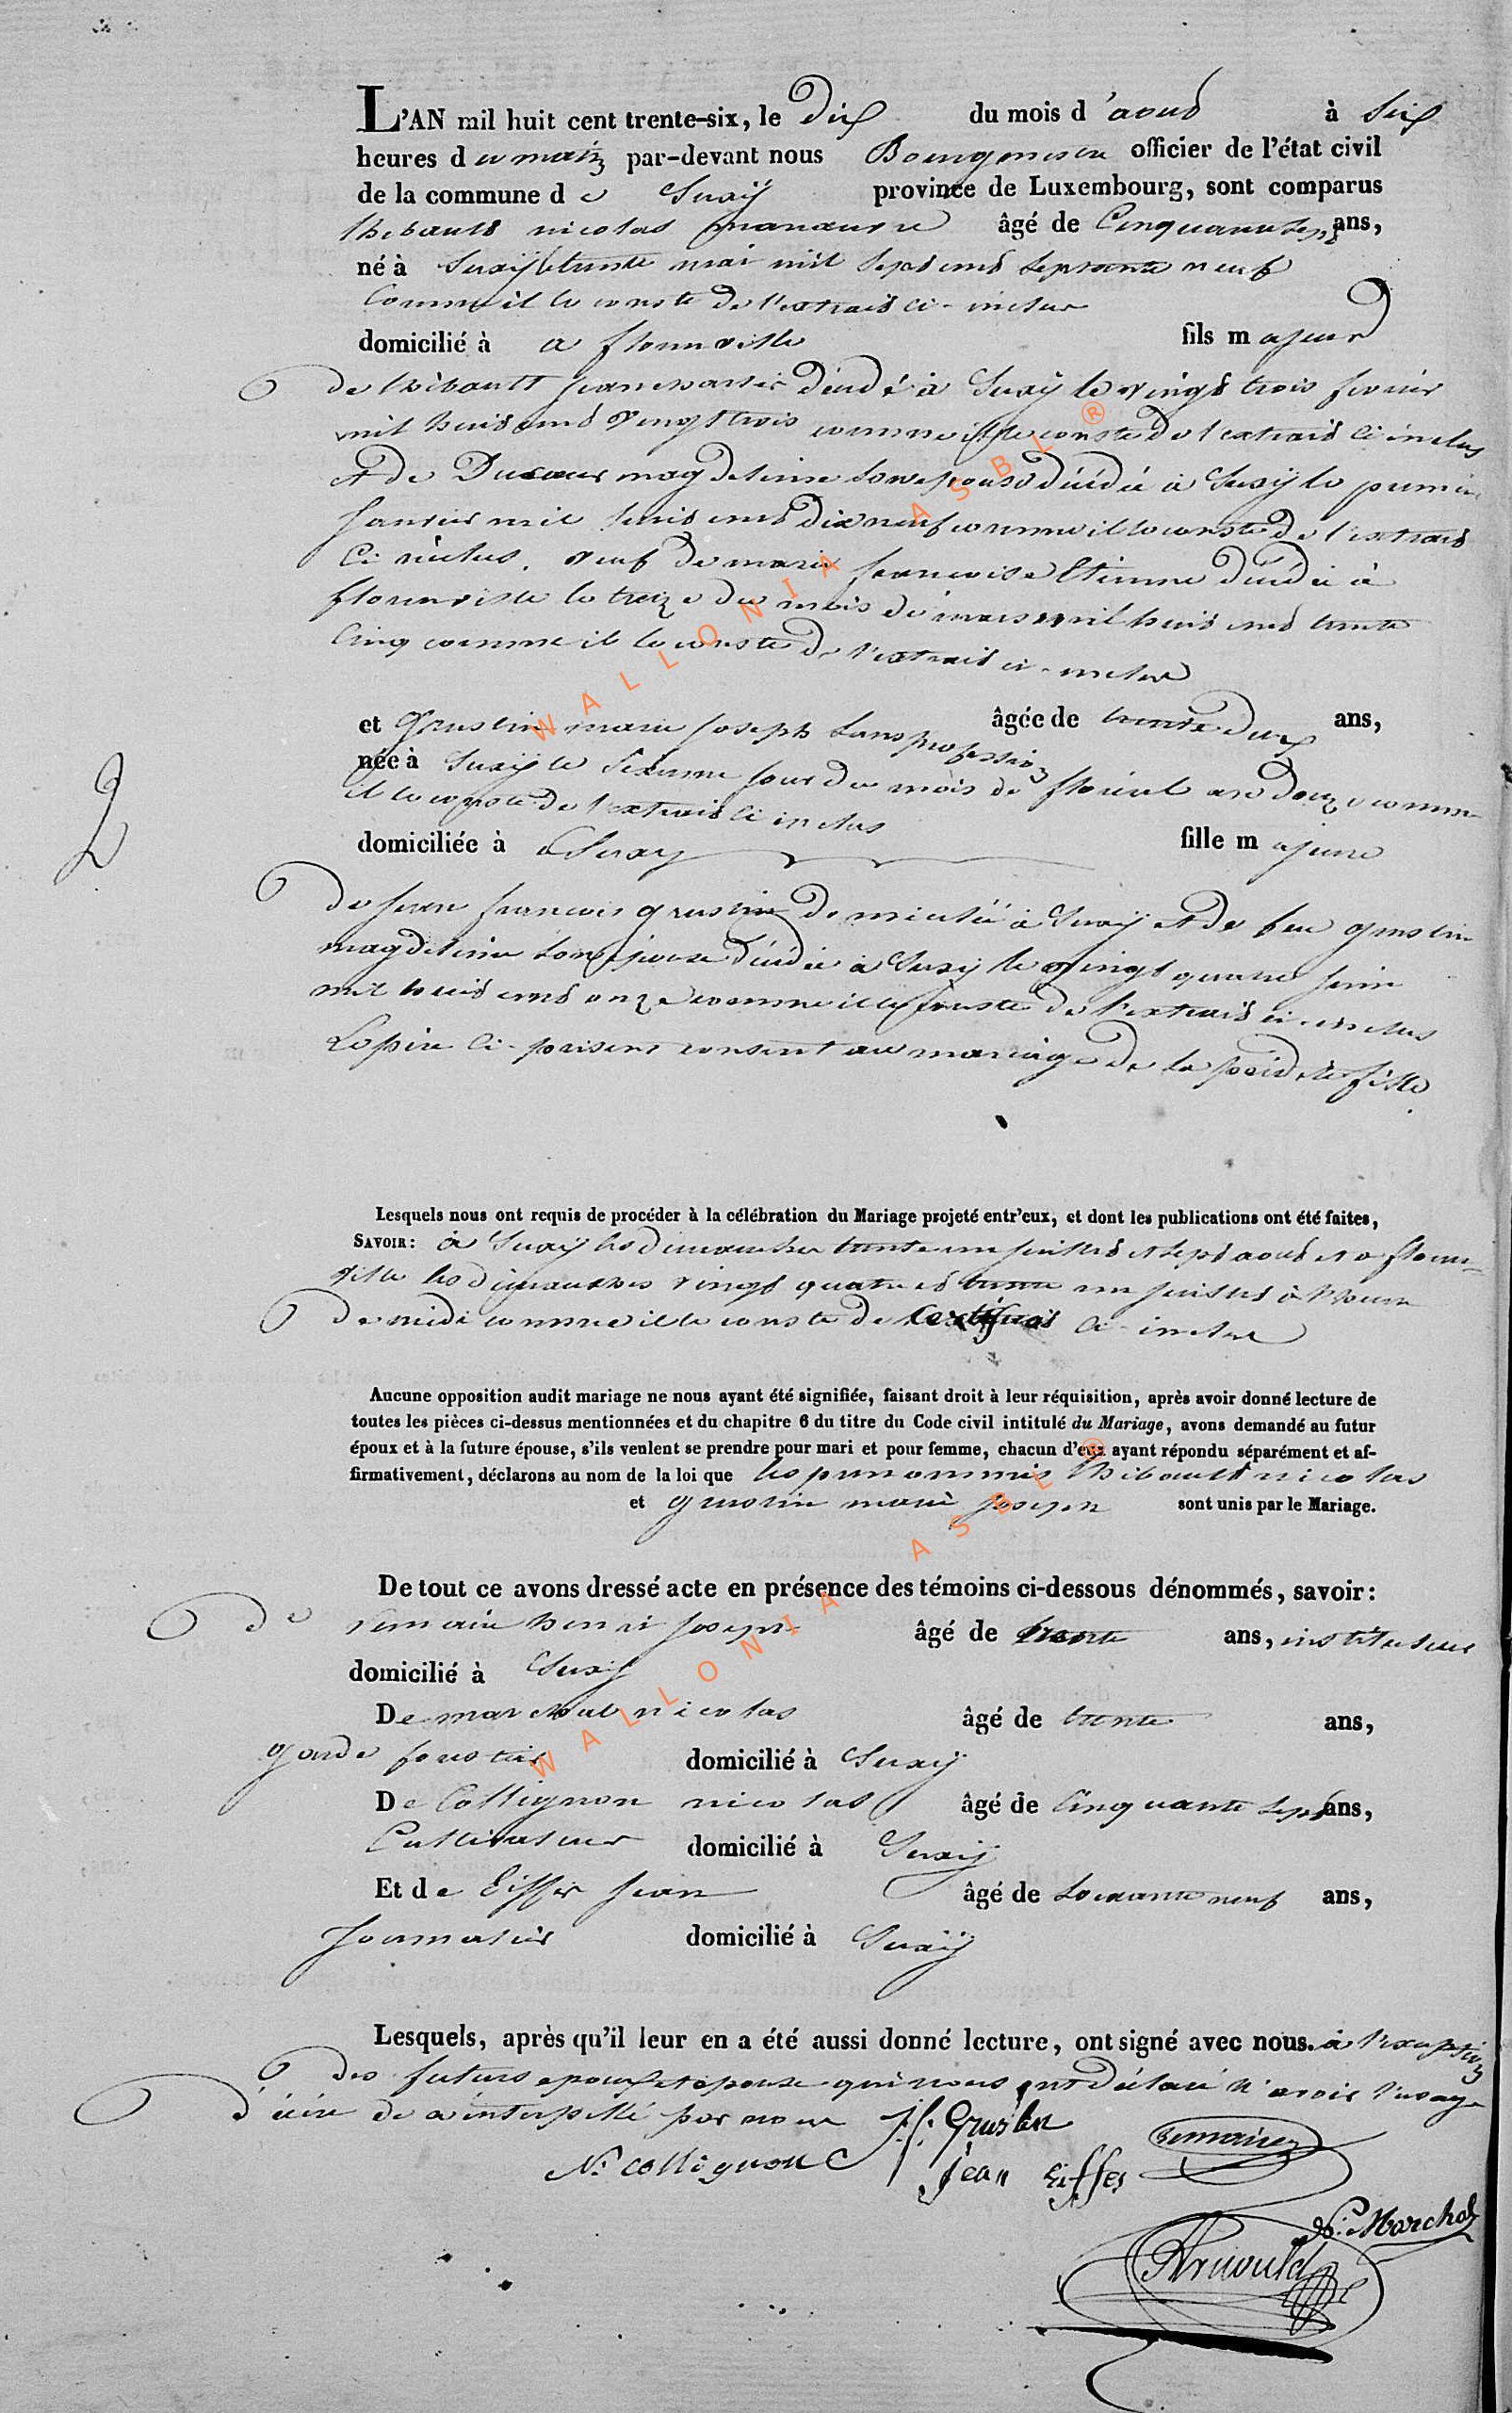 L'AN mil huit cent trente-six, le Dix du mois d'aout à Six
heures du matin par-devant nous Bourgmestre officier de l'état civil
de la commune de Suxÿ province de Luxembourg, sont comparus
thibault nicolas manœuvre âgé de Cinquante sept ans,
né à Suxÿ le trente mai mil sept cent septante neuf
Comme il le conste de l'extrait ci-inclus
domicilié à a florenville fils majeur
de thibault jean décédé à Suxÿ le vingt trois fevrier
mil huit cent vingt trois comme il le conste de l'extrait ci inclus
et de magdeleine son epouse décédée à Suxÿ le premier
janvier mil huit cent dix neuf comme il le conste de l'extrait
Ci inclus. veuf de marie francoise Etienne décédée à
florenville le treize du mois de mars mil huit cent trente
Cinq comme il le conste de l'extrait ci-inclus
et Gruslin marie joseph sans profession âgée de trente deux ans,
née à Suxÿ le jour du mois de floréal an douze comme
il le conste de l'extrait ci inclus
domiciliée à a Suxy fille majeure
de jean francois gruslin domicilié à Suxÿ et de feu gruslin
magdeleine son epouse décédée à Suxÿ le vingt quatre juin
mil huit cent onze comme il le conste de l'extrait ci-inclus
Le pere ci-present consent au mariage de la predite fille
2
Lesquels nous ont requis de procéder à la célébration du Mariage projeté entr'eux, et dont les publications ont été faites,
SAVOIR: à Suxÿ les dimanches trente un juillet et sept aout et a floren-
ville les dimanches vingt quatre et trente un juillet à l'heure
de midi comme il le conste de certificat ci-inclus
Aucune opposition audit mariage ne nous ayant été signifiée, faisant droit à leur réquisition, après avoir donné lecture de
toutes les pièces ci-dessus mentionnées et du chapitre 6 du titre du Code civil intitulé du Mariage, avons demandé au futur
époux et à la future épouse, s'ils veulent se prendre pour mari et pour femme, chacun d'eux ayant répondu séparément et af-
firmativement, déclarons au nom de la loi que les prenommés thibault nicolas
et gruslin marie joseph sont unis par le Mariage.
De tout ce avons dressé acte en présence des témoins ci-dessous dénommés, savoir:
de henri joseph âgé de trente ans, instituteur
domicilié à Suxÿ
De marchal nicolas âgé de trente ans,
garde forestier domicilié à Suxÿ
De Collignon nicolas âgé de Cinquante sept ans,
Cultivateur domicilié à Suxÿ
Et de Eiffes jean âgé de soixante neuf ans,
journalier domicilié à Suxÿ
Lesquels, après qu'il leur en a été aussi donné lecture, ont signé avec nous. à l'exception
des futurs epoux et epouse qui nous ont déclaré n'avoir l'usage
d'écrire de ce interpellé par nous j.f. Gruslin
N: collignon jean Eiffes
N: Marchal
Arnould
WALLONIA ASBL ®
WALLONIA ASBL ®